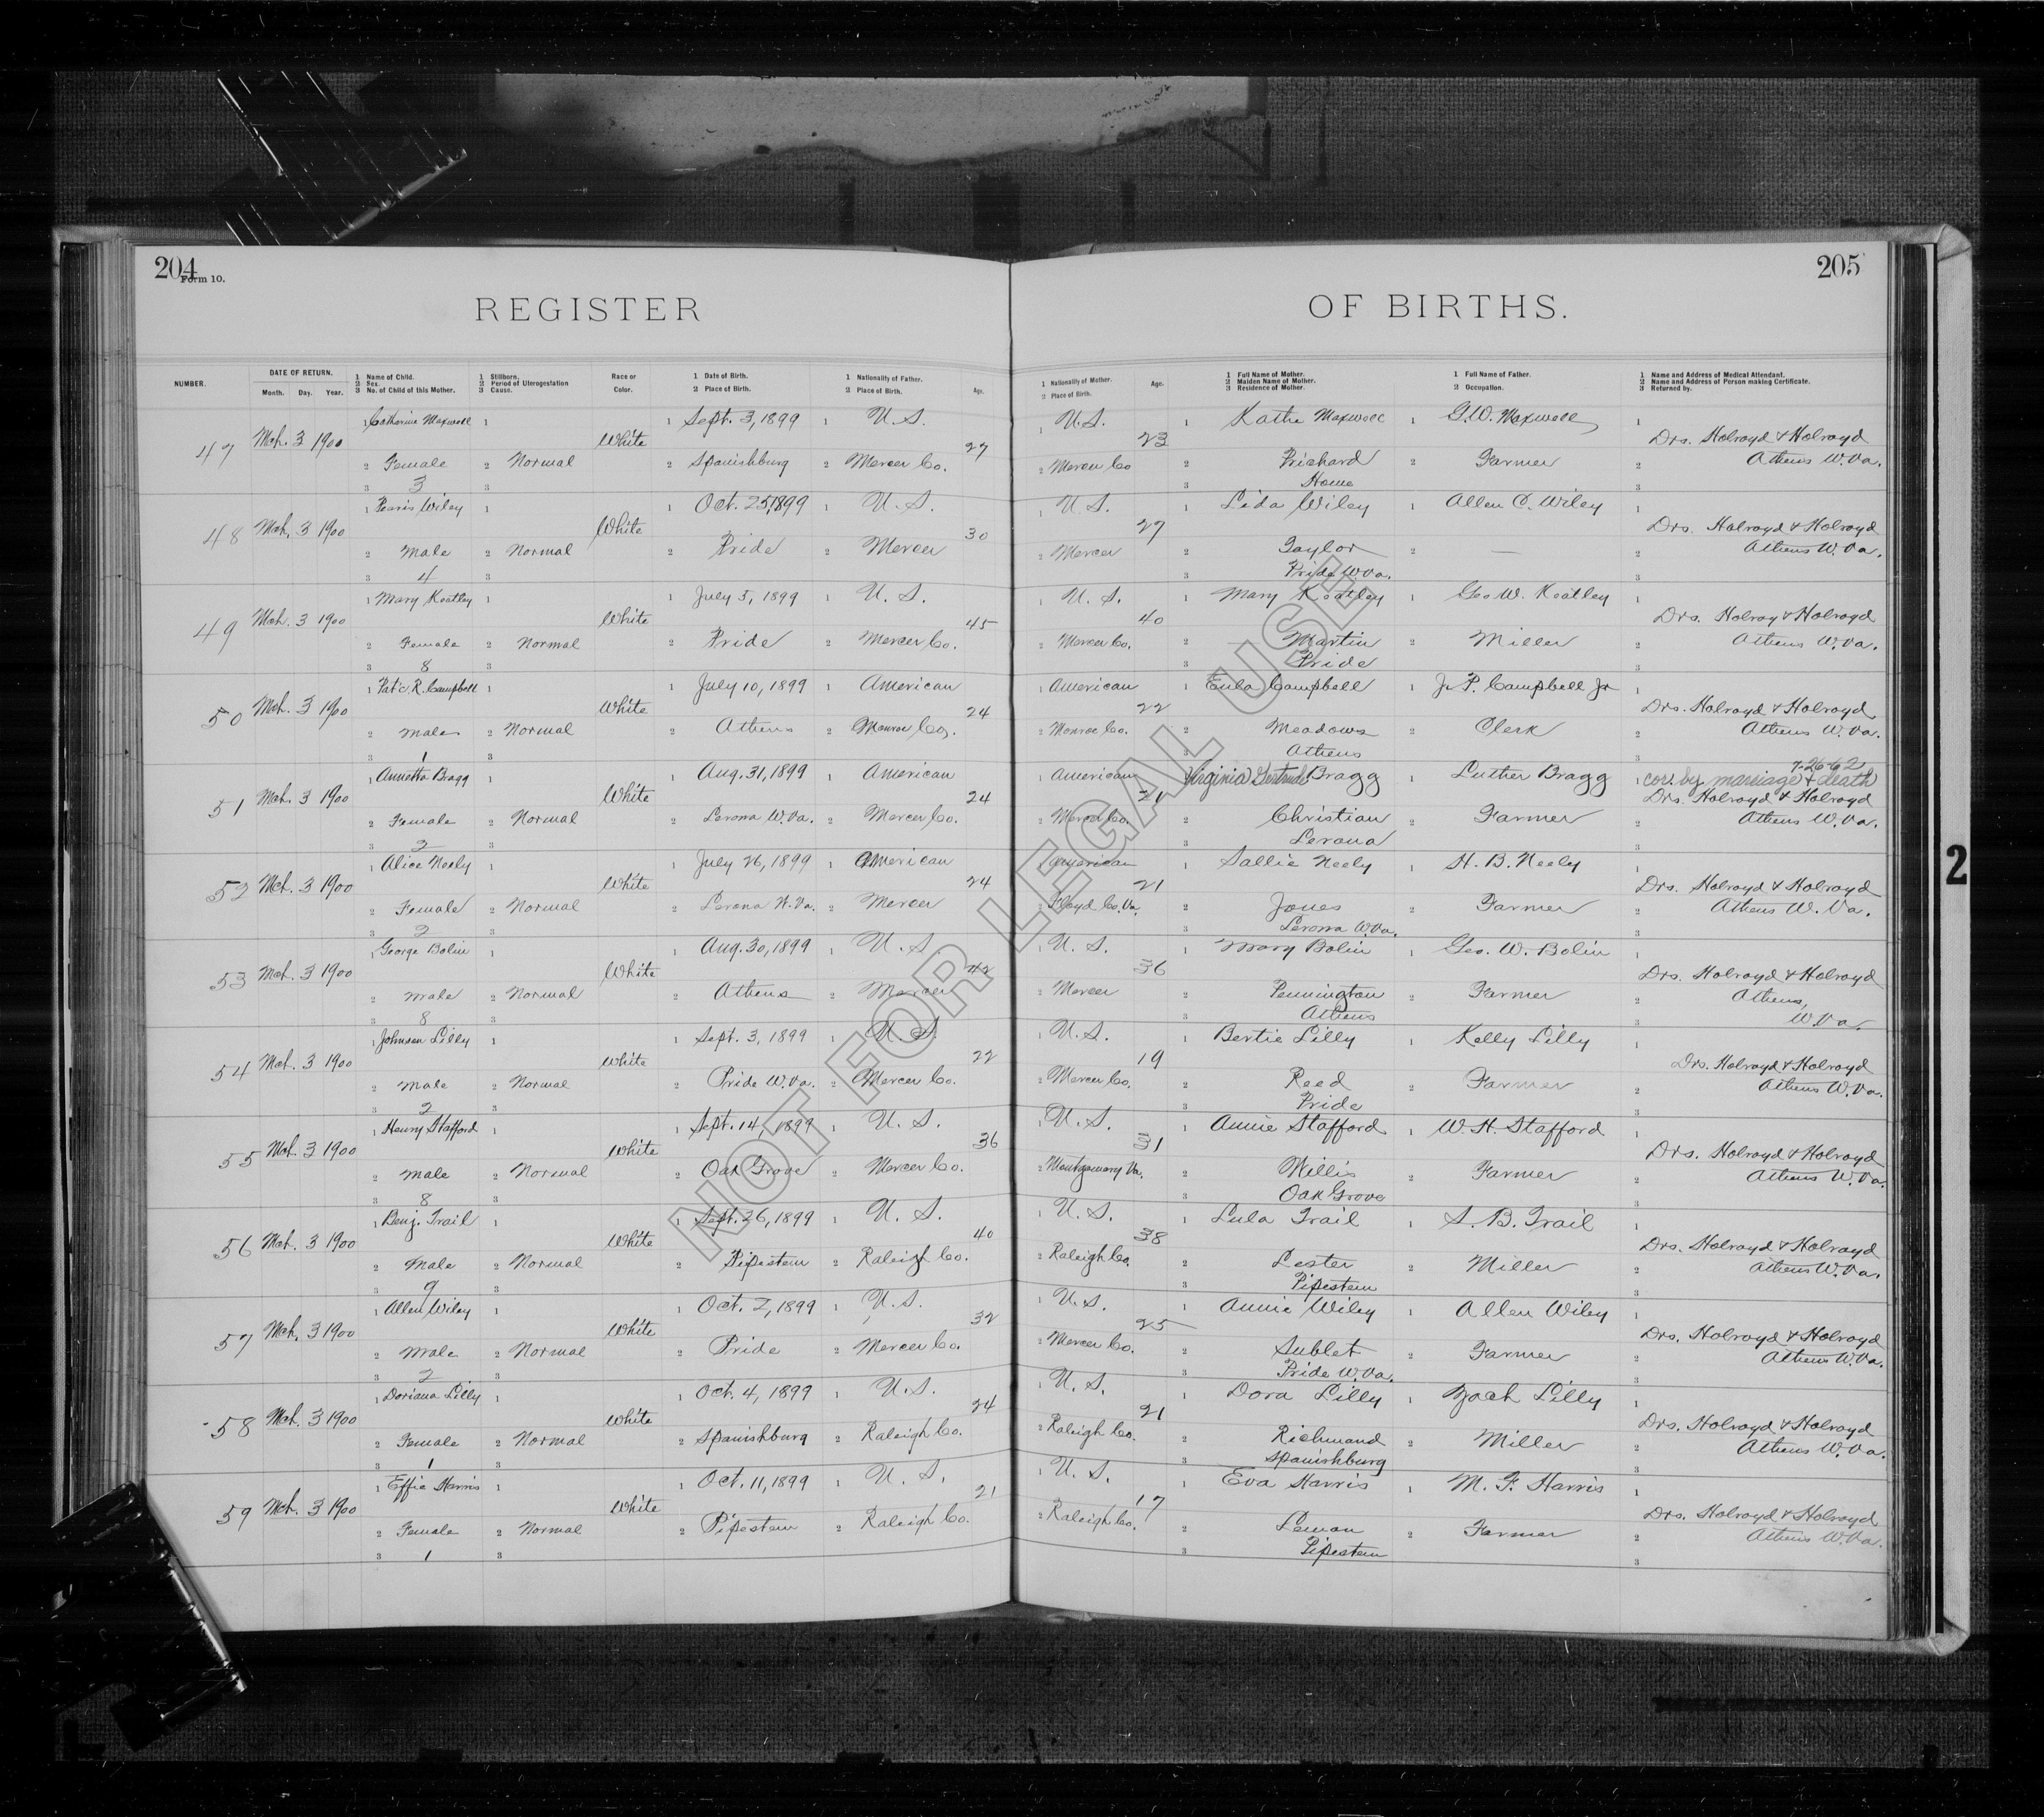 204
Form 10.
205
REGISTER OF BIRTHS.
NUMBER.
DATE OF RETURN.
Month. Day. Year.
1 Name of Child.
2 Sex.
3 No. of Child of this Mother.
1 Stillborn.
2 Period of Uterogestation
3 Cause.
Race or
Color.
1 Date of Birth.
2 Place of Birth.
1 Nationality of Father.
2 Place of Birth.
Age.
1 Nationality of Mother.
2 Place of Birth.
Age.
1 Full Name of Mother.
2 Maiden Name of Mother.
3 Residence of Mother.
1 Full Name of Father.
2 Occupation.
1 Name and Address of Medical Attendant.
2 Name and Address of Person making Certificate.
3 Returned by.
1 Catherine Maxwell 1 1 Sept. 3, 1899 1 U.S. 1 U.S. 1 Kathe Maxwell 1 G.W. Maxwell 1
47 Mch. 3 1900 White 27 23 Drs. Holroyd & Holroyd
2 Female 2 Normal 2 Spanishburg 2 Mercer Co. 2 Mercer Co 2 Prichard 2 Farmer 2 Athens W.Va.
3 3 3 3 Home 3
1 Wiley 1 1 Oct. 25, 1899 1 U.S. 1 U.S. 1 Lida Wiley 1 Allen C. Wiley 1
48 Mch. 3 1900 White 30 27 Drs. Holroyd & Holroyd
2 Male 2 Normal 2 Pride 2 Mercer 2 Mercer 2 Taylor 2 — 2 Athens W.Va.
3 4 3 3 Pride W.Va. 3
1 Mary Keatley 1 1 July 5, 1899 1 U.S. 1 U.S. 1 Mary Keatley 1 Geo W. Keatley 1
49 Mch. 3 1900 White 45 40 Drs. Holroy & Holroyd
2 Female 2 Normal 2 Pride 2 Mercer Co. 2 Mercer Co. 2 Martin 2 Miller 2 Athens W.Va.
3 8 3 3 Pride 3
1 Pat'c. R. Campbell 1 1 July 10, 1899 1 American 1 American 1 Eula Campbell 1 J. P. Campbell Jr 1
50 Mch. 3 1900 White 24 22 Drs. Holroyd & Holroyd
2 Male 2 Normal 2 Athens 2 Monroe Co. 2 Monroe Co. 2 Meadows 2 Clerk 2 Athens W.Va.
3 1 3 3 Athens 3
7-26-62
1 Annetta Bragg 1 1 Aug. 31, 1899 1 American 1 American Virginia Gertrude Bragg 1 Luther Bragg 1 cor. by marriage & death
51 Mch. 3 1900 White 24 21 Drs. Holroyd & Holroyd
2 Female 2 Normal 2 Lerona W.Va. 2 Mercer Co. 2 Mercer Co. 2 Christian 2 Farmer 2 Athens W.Va.
3 2 3 3 Lerona 3
1 Alice Neely 1 1 July 26, 1899 1 American 1 American 1 Sallie Neely 1 H. B. Neely 1
52 Mch. 3 1900 White 24 21 Drs. Holroyd & Holroyd
2 Female 2 Normal 2 Lerona W.Va. 2 Mercer 2 Floyd Co. Va. 2 Jones 2 Farmer 2 Athens W.Va.
3 2 3 3 Lerona W.Va. 3
1 George Bolin 1 1 Aug. 30, 1899 1 U.S 1 U.S. 1 Mary Bolin 1 Geo. W. Bolin 1
53 Mch. 3 1900 White 42 36 Drs. Holroyd & Holroyd
2 Male 2 Normal 2 Athens 2 Mercer 2 Mercer 2 Pennington 2 Farmer 2 Athens,
3 8 3 3 Athens 3 W.Va.
1 Johnson Lilly 1 1 Sept. 3, 1899 1 U.S. 1 U.S. 1 Bertie Lilly 1 Kelly Lilly 1
54 Mch. 3 1900 White 22 19 Drs. Holroyd & Holroyd
2 Male 2 Normal 2 Pride W.Va. 2 Mercer Co. 2 Mercer Co. 2 Reed 2 Farmer 2 Athens W.Va.
3 2 3 3 Pride 3
1 Henry Stafford 1 1 Sept. 14, 1899 1 U.S. 1 U.S. 1 Annie Stafford 1 W.H. Stafford 1
55 Mch. 3 1900 White 36 31 Drs. Holroyd & Holroyd
2 Male 2 Normal 2 Oak Grove 2 Mercer Co. 2 Montgomery Va. 2 Willis 2 Farmer 2 Athens W.Va.
3 8 3 3 Oak Grove 3
1 Benj. Trail 1 1 Sept. 26, 1899 1 U.S. 1 U.S. 1 Lula Trail 1 S. B. Trail 1
56 Mch. 3 1900 White 40 38 Drs. Holroyd & Holroyd
2 Male 2 Normal 2 Pipestem 2 Raleigh Co. 2 Raleigh Co. 2 Lester 2 Miller 2 Athens W.Va.
3 9 3 3 Pipestem 3
1 Allen Wiley 1 1 Oct. 2, 1899 1 U.S. 1 U.S. 1 Annie Wiley 1 Allen Wiley 1
57 Mch. 3 1900 White 32 25 Drs. Holroyd & Holroyd
2 Male 2 Normal 2 Pride 2 Mercer Co. 2 Mercer Co. 2 Sublet 2 Farmer 2 Athens W.Va.
3 2 3 3 Pride W.Va. 3
1 Doriana Lilly 1 1 Oct. 4, 1899 1 U.S. 1 U.S. 1 Dora Lilly 1 Zach Lilly 1
58 Mch. 3 1900 White 24 21 Drs. Holroyd & Holroyd
2 Female 2 Normal 2 Spanishburg 2 Raleigh Co. 2 Raleigh Co. 2 Richmond 2 Miller 2 Athens W.Va.
3 1 3 3 Spanishburg 3
1 Effie Harris 1 1 Oct. 11, 1899 1 U.S. 1 U.S. 1 Eva Harris 1 M. F. Harris 1
59 Mch. 3 1900 White 21 17 Drs. Holroyd & Holroyd
2 Female 2 Normal 2 Pipestem 2 Raleigh Co. 2 Raleigh Co. 2 Leman 2 Farmer 2 Athens W.Va.
3 1 3 3 Pipestem 3
NOT FOR LEGAL USE
2